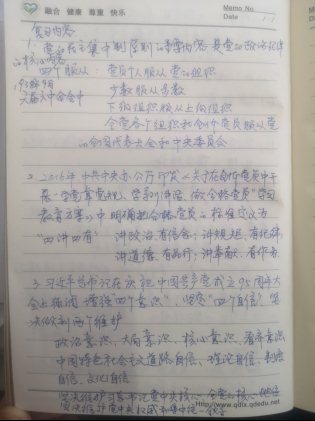 融合 健康 尊重 快乐
Memo No.
Date
复习内容
1. 党的民主集中制原则的重要内容 是党的政治纪律
的核心内容
四个服从: 党员个人服从党的组织
1938年9月 少数服从多数
六届六中全会 下级组织服从上级组织
全党各个组织和全体党员服从党
的全国代表大会和中央委员会
2. 2016年 中共中央办公厅印发《关于在全体党员中开
展“学党章党规、学系列讲话, 做合格党员”学习
教育方案》中 明确把合格党员的标准定位为
“四讲四有” 讲政治、有信念; 讲规矩、有纪律
讲道德、有品行; 讲奉献、有作为
3. 习近平总书记在庆祝中国共产党成立95周年大
会上强调 增强“四个意识”、坚定“四个自信”坚
决做到两个维护
政治意识、大局意识、核心意识、看齐意识
中国特色社会主义道路自信、理论自信、制度
自信、文化自信
坚决维护习总书记党中央核心、全党的核心地位
坚决维护党中央权威和集中统一领导
Http://www.qdlx.qdedu.net